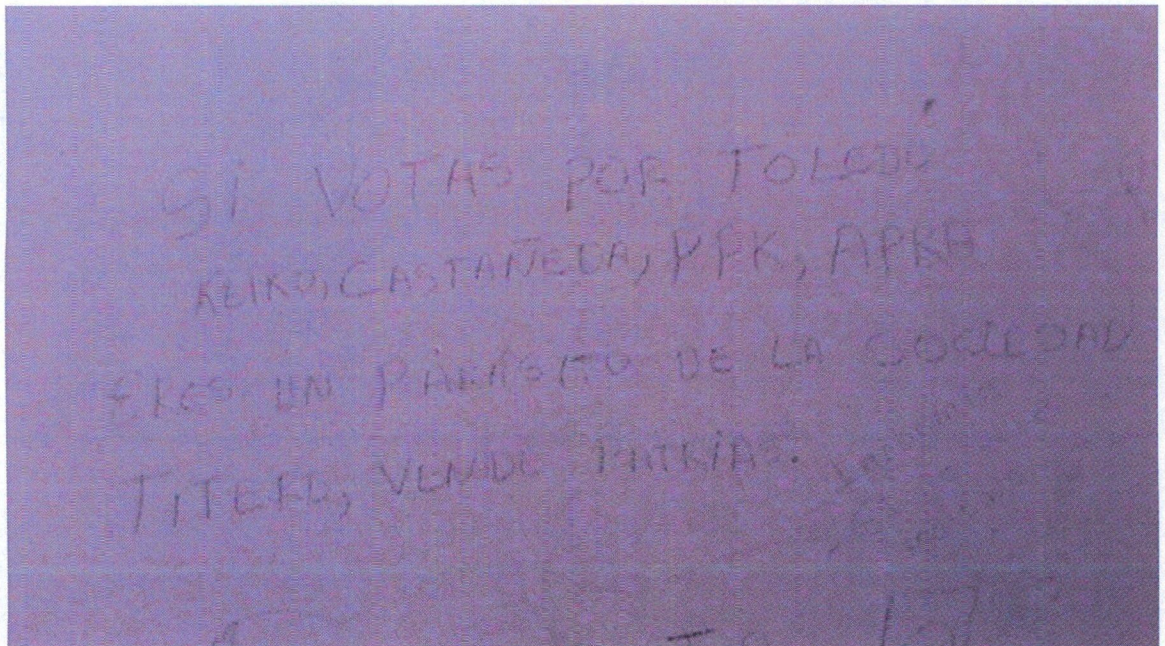 Si VOTAS POR TOLEDO
KEIKO, CASTAÑEDA, PPK, APRA
ERES UN PARASITO DE LA SOCIEDAD
TITERE, VENDE PATRIAS.